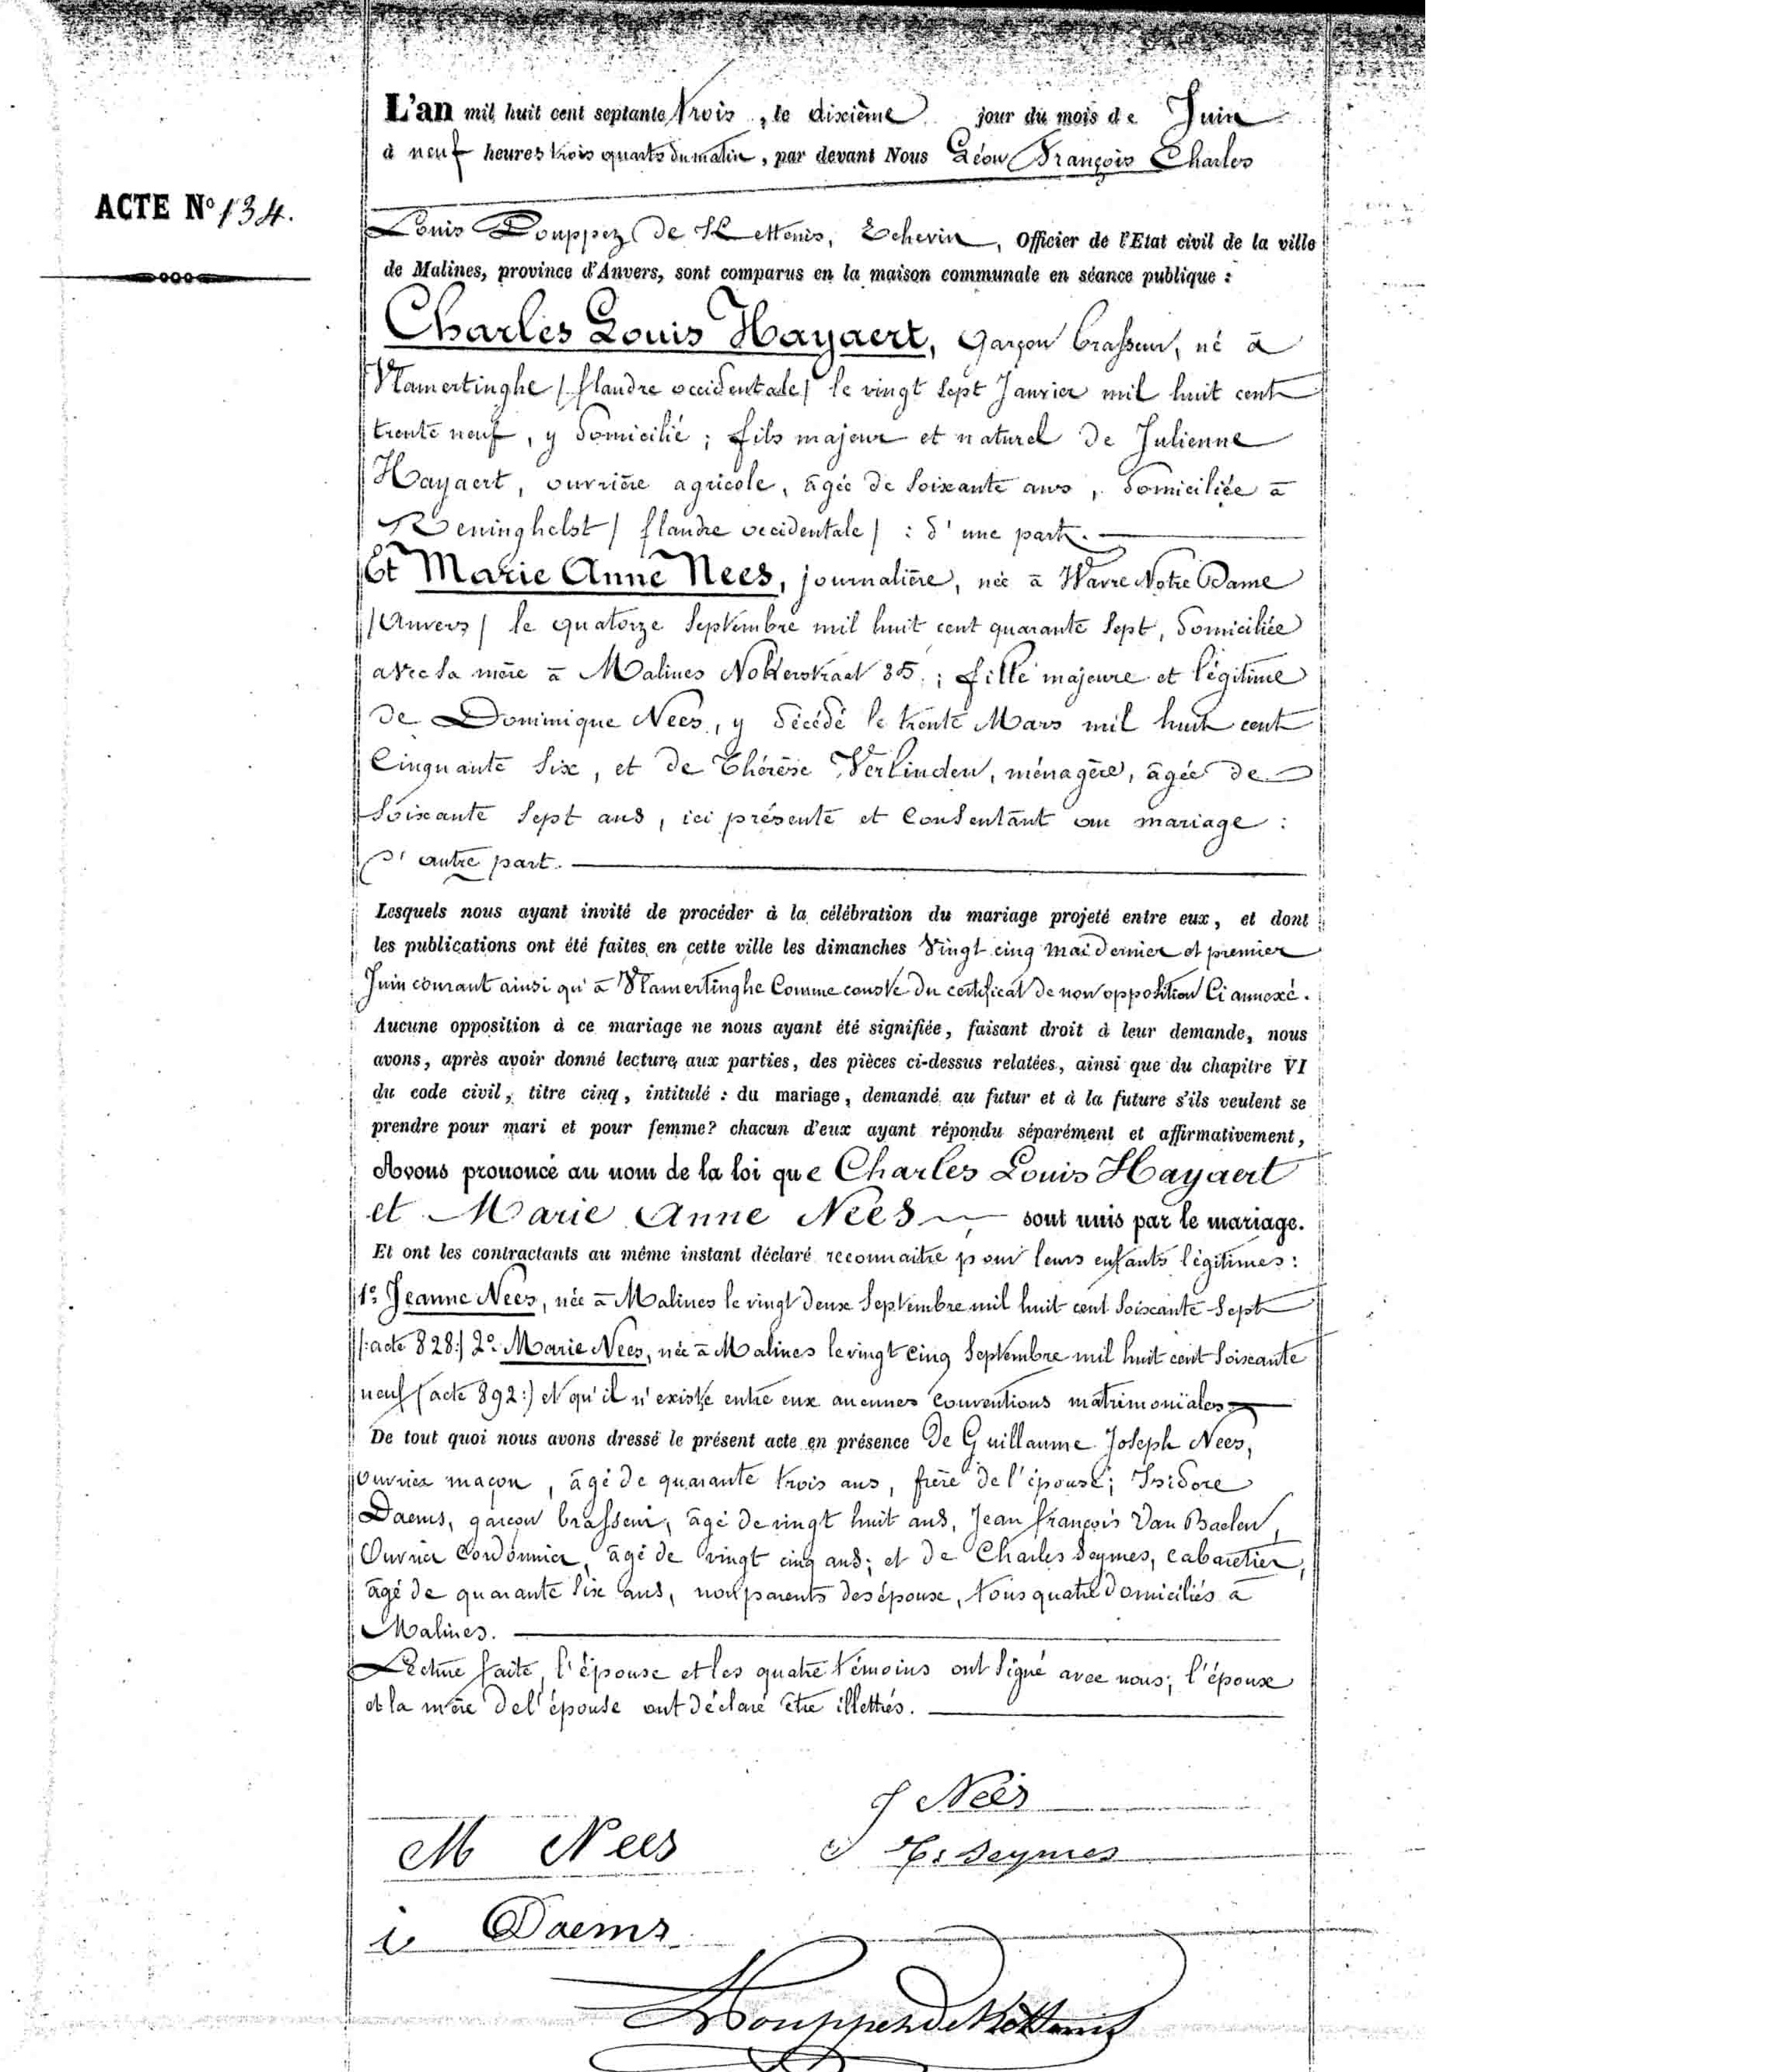 L'an mil huit cent septante trois, le dixième jour du mois de Juin
à neuf heures trois quarts du matin, par devant Nous Léon François Charles
ACTE N° 134.
Louis Pouppez de Kettenis, Echevin, Officier de l'Etat civil de la ville
de Malines, province d'Anvers, sont comparus en la maison communale en séance publique :
Charles Louis Hayaert, garçon brasseur, né à
Vlamertinghe / flandre occidentale / le vingt sept Janvier mil huit cent
trente neuf, y domicilié ; fils majeur et naturel de Julienne
Hayaert, ouvrière agricole, âgée de soixante ans, domiciliée à
Reninghelst / flandre occidentale / : d'une part.
Et Marie Anne Nees, journalière, née à Wavre Notre Dame
/ Anvers / le quatorze Septembre mil huit cent quarante sept, domiciliée
avec sa mère à Malines Nokerstraat 35 ; fille majeure et légitime
de Dominique Nees, y décédé le trente Mars mil huit cent
cinquante six, et de Thérèse Verlinden, ménagère, âgée de
soixante sept ans, ici présente et consentant au mariage :
d'autre part.
Lesquels nous ayant invité de procéder à la célébration du mariage projeté entre eux, et dont
les publications ont été faites en cette ville les dimanches vingt cinq mai dernier et premier
Juin courant ainsi qu'à Vlamertinghe comme conste du certificat de non opposition ci annexé.
Aucune opposition à ce mariage ne nous ayant été signifiée, faisant droit à leur demande, nous
avons, après avoir donné lecture aux parties, des pièces ci-dessus relatées, ainsi que du chapitre VI
du code civil, titre cinq, intitulé : du mariage, demandé au futur et à la future s'ils veulent se
prendre pour mari et pour femme? chacun d'eux ayant répondu séparément et affirmativement,
Avons prononcé au nom de la loi que Charles Louis Hayaert
et Marie Anne Nees sont unis par le mariage.
Et ont les contractants au même instant déclaré reconnaitre pour leurs enfants légitimes :
1° Jeanne Nees, née à Malines le vingt deux Septembre mil huit cent soixante sept
/: acte 828 :/ 2° Marie Nees, née à Malines le vingt cinq Septembre mil huit cent soixante
neuf (acte 892 :) et qu'il n'existe entre eux aucunes conventions matrimoniales
De tout quoi nous avons dressé le présent acte en présence de Guillaume Joseph Nees,
ouvrier maçon, âgé de quarante trois ans, frère de l'épouse ; Isidore
Daems, garçon brasseur, âgé de vingt huit ans, Jean François Van Baelen,
ouvrier cordonnier, âgé de vingt cinq ans ; et de Charles Seymes, cabaretier,
âgé de quarante six ans, non parents des époux, tous quatre domiciliés à
Malines.
Lecture faite, l'épouse et les quatre témoins ont signé avec nous ; l'époux
et la mère de l'épouse ont déclaré être illettrés.
J Nees
M Nees
Seymes
i Daems
Pouppez de Kettenis